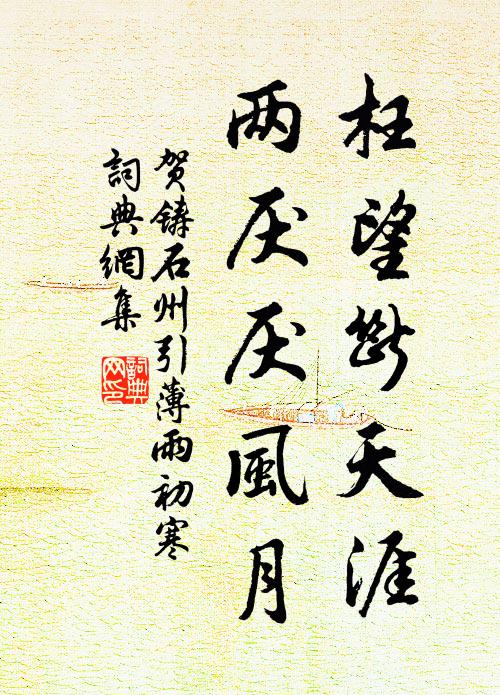 枉望斷天涯
两厌厌風月
贺鑄石州引薄雨初寒
詞典網集
詞典网印